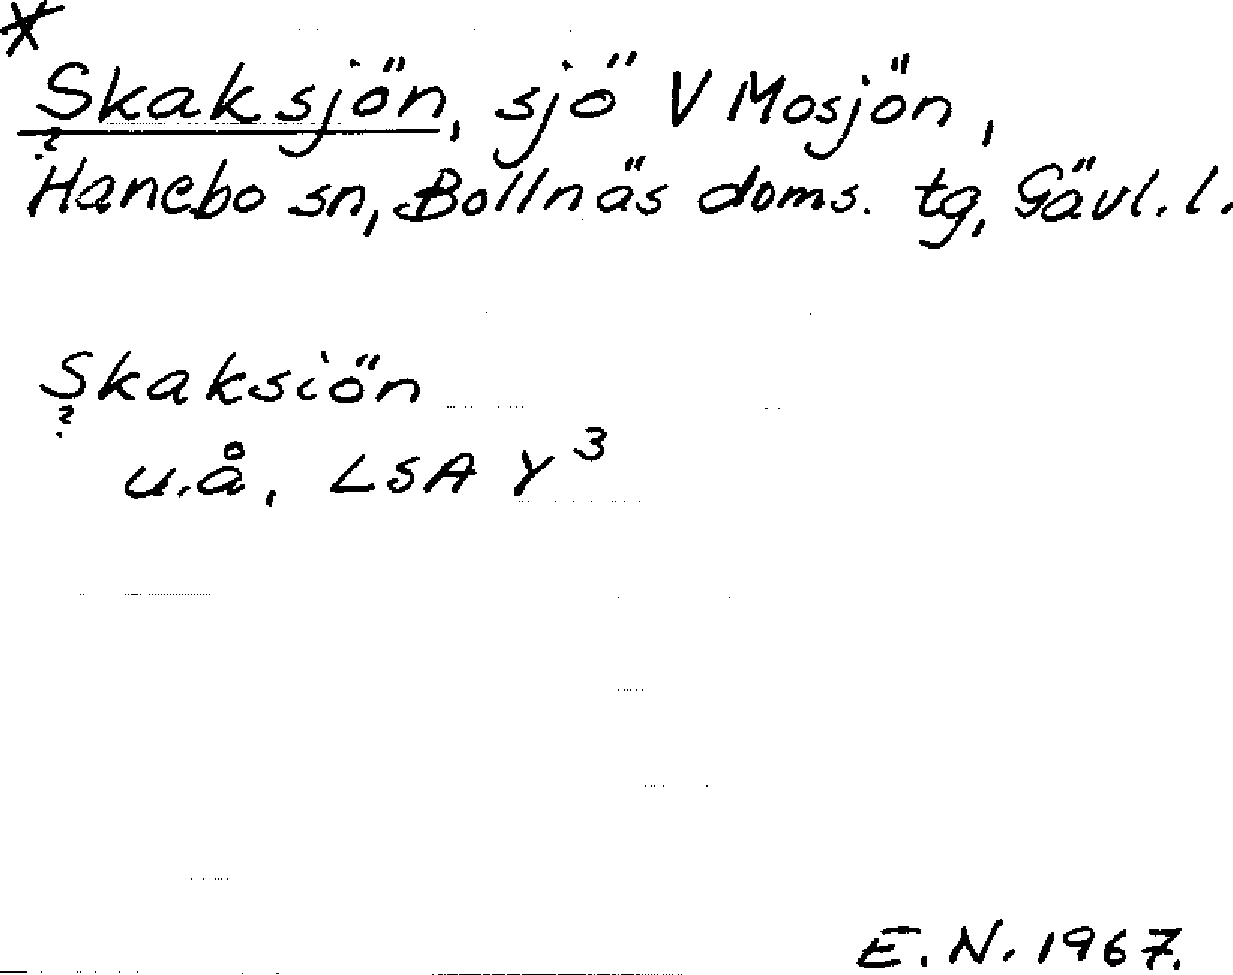 *
Skaksjön, sjö V Mosjön,
?
Hanebo sn, Bollnäs doms. tg, Gävl. l.
Skaksiön
?
u.å, LSA Y³
E.N. 1967.